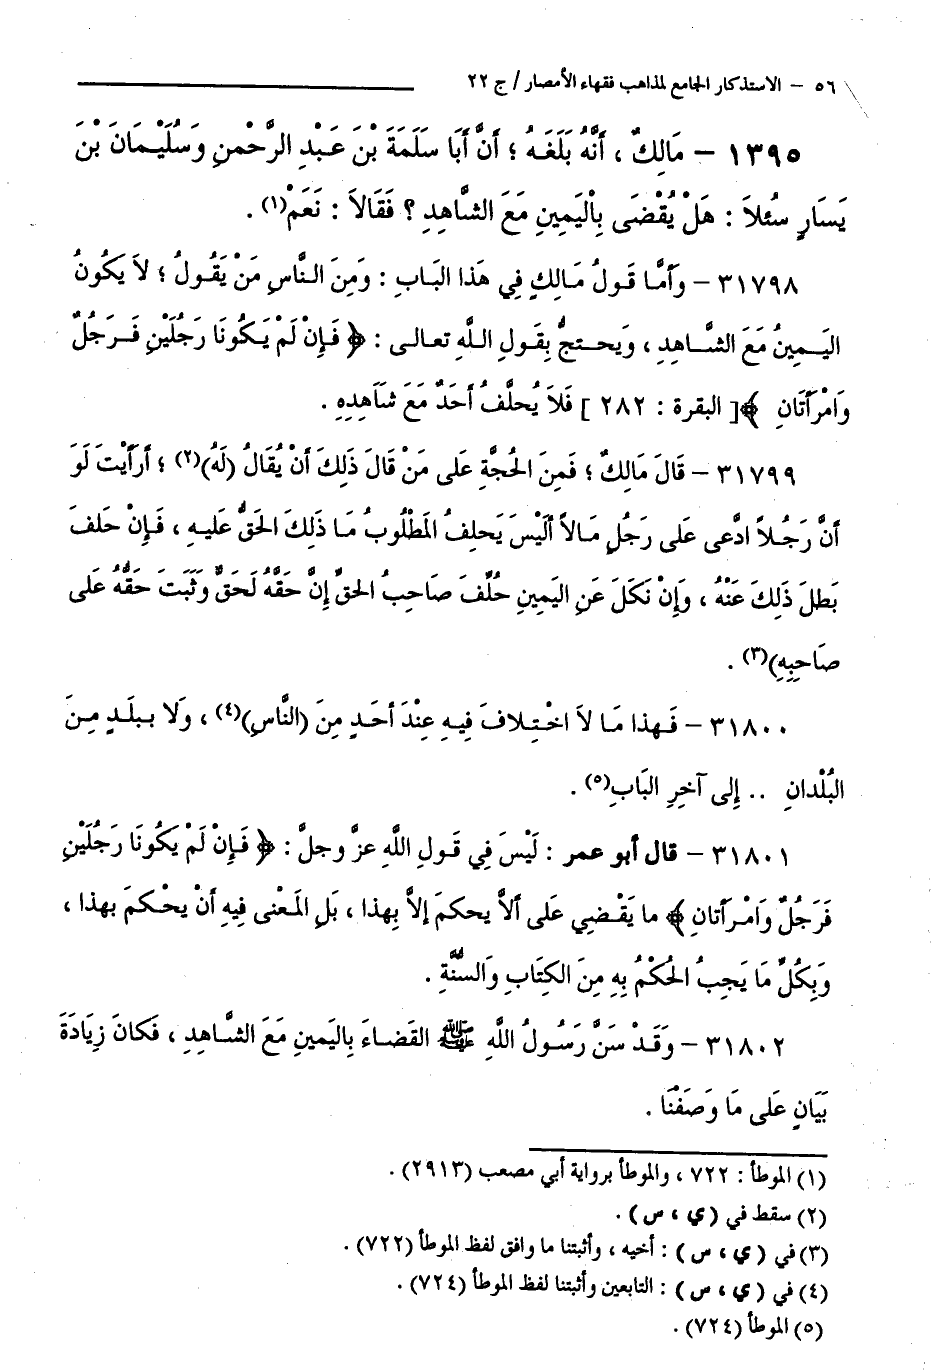 ٥٦ – الاستذكار الجامع لمذاهب فقهاء الأمصار / ج ٢٢
١٣٩٥ – مَالِكٌ ، أَنَّهُ بَلَغَهُ ؛ أَنَّ أَبَا سَلَمَةَ بْنَ عَبْدِ الرَّحْمنِ وَسُلَيْمَانَ بْنَ
يَسَارٍ سُئلاَ : هَلْ يُقْضَى بِالْيَمِينِ مَعَ الشَّاهِدِ ؟ فَقَالاَ : نَعَمْ(١) .
٣١٧٩٨ – وَأَمَّا قَولُ مَالِكٍ فِي هَذا البَابِ : وَمِنَ النَّاسِ مَنْ يَقُولُ ؛ لاَ يَكُونُ
اليَمِينُ مَعَ الشَّاهِدِ ، وَيَحتجُّ بِقَولِ اللَّهِ تعالى : ﴿ فَإِنْ لَمْ يَكُونَا رَجُلَيْنِ فَرَجُلٌ
وَامْرَأَتَانِ ﴾[ البقرة : ٢٨٢ ] فَلاَ يُحلَّفُ أَحَدٌ مَعَ شَاهِدِهِ .
٣١٧٩٩ – قَالَ مَالِكٌ ؛ فَمِنَ الحُجَّةِ عَلى مَنْ قَالَ ذَلِكَ أَنْ يُقَالُ (لَهُ)(٢) ؛ أرَأَيْتَ لَو
أنَّ رَجُلاً ادَّعى عَلى رَجُلٍ مَالاً أَلَيْسَ يَحلِفُ المَطْلُوبُ مَا ذَلِكَ الحَقُّ عَليهِ ، فَإِنْ حَلفَ
بَطلَ ذَلِكَ عَنْهُ ، وَإِنْ نَكَلَ عَنِ اليَمِينِ حُلِّفَ صَاحِبُ الحقِّ إِنَّ حَقَّهُ لَحَقٌّ وَثَبَتَ حَقُّهُ عَلى
صَاحِبِهِ)(٣) .
٣١٨٠٠ – فَهذا مَا لاَ اخْتِلافَ فِيهِ عِنْدَ أحَدٍ مِنَ (النَّاسِ)(٤) ، وَلا بِبلَدٍ مِنَ
البُلْدانِ .. إِلى آخِرِ البَابِ(٥) .
٣١٨٠١ – قال أبو عمر : لَيْسَ فِي قَولِ اللَّهِ عزَّ وجلَّ : ﴿ فَإِنْ لَمْ يَكُونَا رَجُلَيْنِ
فَرَجُلٌ وَامْرَأتانِ ﴾ ما يَقْضِي عَلى ألاَّ يحكمَ إلاَّ بِهذا ، بَلِ المَعْنى فِيهِ أنْ يحْكمَ بهذا ،
وَبِكُلِّ مَا يَجِبُ الحُكْمُ بِهِ مِنَ الكِتَابِ وَالسُّنَّةِ .
٣١٨٠٢ – وَقَدْ سَنَّ رَسُولُ اللَّهِ ﷺ القَضاءَ بِاليَمينِ مَعَ الشَّاهِدِ ، فَكانَ زِيَادَةَ
بَيَانٍ عَلى مَا وَصَفْنَا .
(١) الموطأ : ٧٢٢ ، والموطأ برواية أبي مصعب (٢٩١٣) .
(٢) سقط في (ي ، س) .
(٣) في (ي ، س) : أخيه ، وأثبتنا ما وافق لفظ الموطأ (٧٢٢) .
(٤) في (ي ، س) : التابعين وأثبتنا لفظ الموطأ (٧٢٤) .
(٥) الموطأ (٧٢٤) .